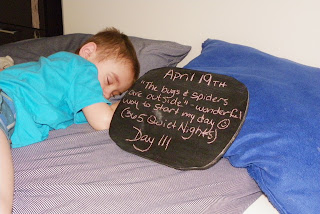 April 19TH
"The bugs & spiders
are outside" - wonderful
way to start my day ☺
(365 Quiet Nights)
Day 111